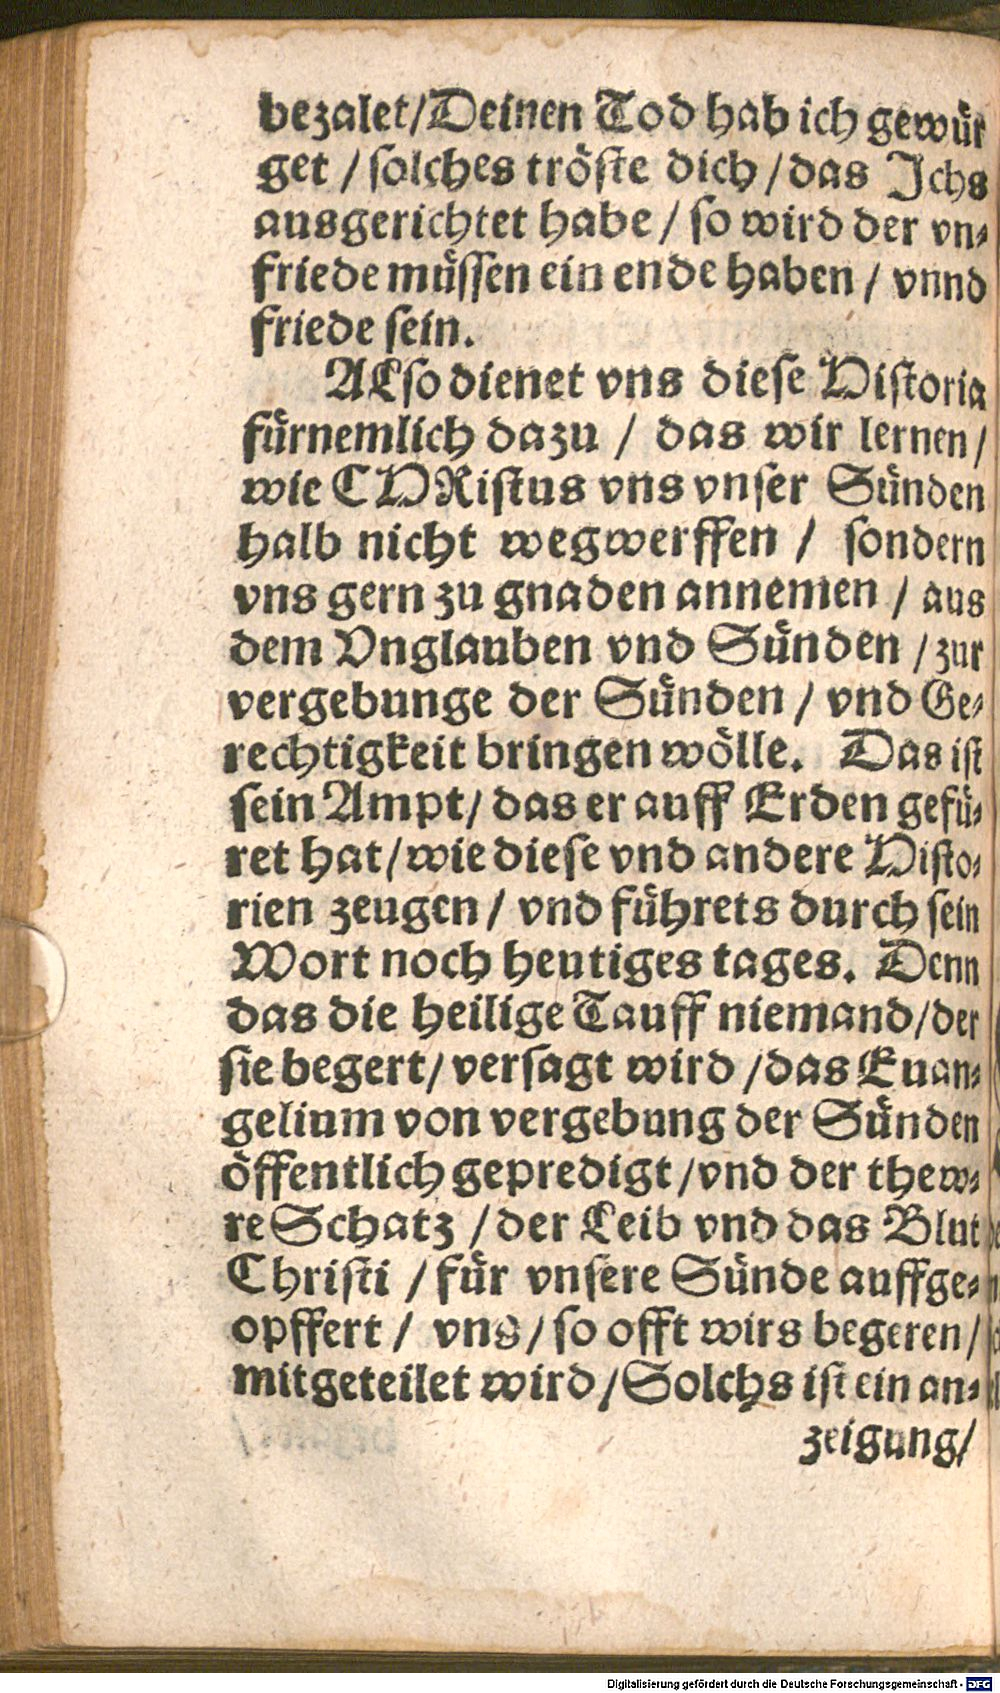 bezalet/Deinen Tod hab ich gewür
get / solches tröste dich / das Ichs
ausgerichtet habe / so wird der vn-
friede müssen ein ende haben / vnnd
friede sein.
ALso dienet vns diese Historia
fürnemlich dazu / das wir lernen /
wie CHRistus vns vnser Sünden
halb nicht wegwerffen / sondern
vns gern zu gnaden annemen / aus
dem Vnglauben vnd Sünden / zur
vergebunge der Sünden / vnd Ge-
rechtigkeit bringen wölle. Das ist
sein Ampt / das er auff Erden gefü-
ret hat / wie diese vnd andere Histo-
rien zeugen / vnd führets durch sein
Wort noch heutiges tages. Denn
das die heilige Tauff niemand / der
sie begert / versagt wird / das Euan-
gelium von vergebung der Sünden
öffentlich gepredigt / vnd der thew-
re Schatz / der Leib vnd das Blut
Christi / für vnsere Sünde auffge-
opffert / vns / so offt wirs begeren /
mitgeteilet wird / Solchs ist ein an-
zeigung /
Digitalisierung gefördert durch die Deutsche Forschungsgemeinschaft - DFG